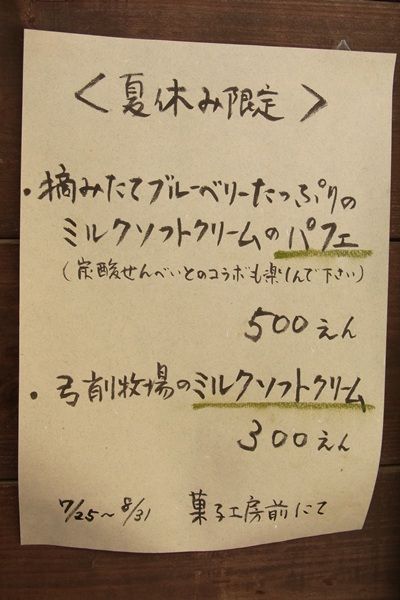 〈夏休み限定〉
・摘みたてブルーベリーたっぷりの
ミルクソフトクリームのパフェ
(炭酸せんべいとのコラボも楽しんで下さい)
500えん
・弓削牧場のミルクソフトクリーム
300えん
7/25〜8/31 菓子工房前にて